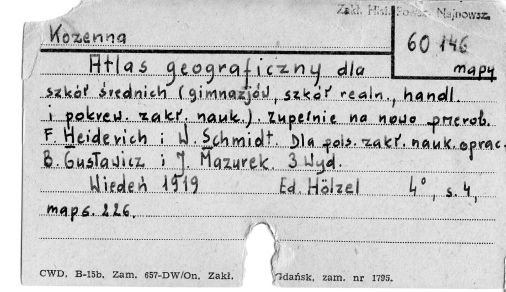 Zakł. Hist. Powsz. Najnowsz.
Kozenna
60 146
mapy
Atlas geograficzny dla
szkół średnich (gimnazjów, szkół realn., handl.
i pokrew. zakł. nauk.). Zupełnie na nowo przerob.
F. Heiderich i W. Schmidt. Dla pols. zakł. nauk. oprac.
B. Gustawicz i J. Mazurek. 3 wyd.
Wiedeń 1919 Ed. Hölzel 4°, s. 4,
map s. 226.
CWD, B-15b, Zam. 657-DW/On, Zakł. Gdańsk, zam. nr 1795.